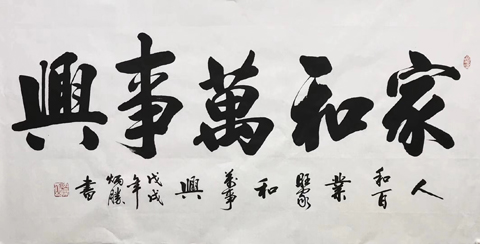 家和萬事興
人和百業旺家和萬事興 戊戌年 書